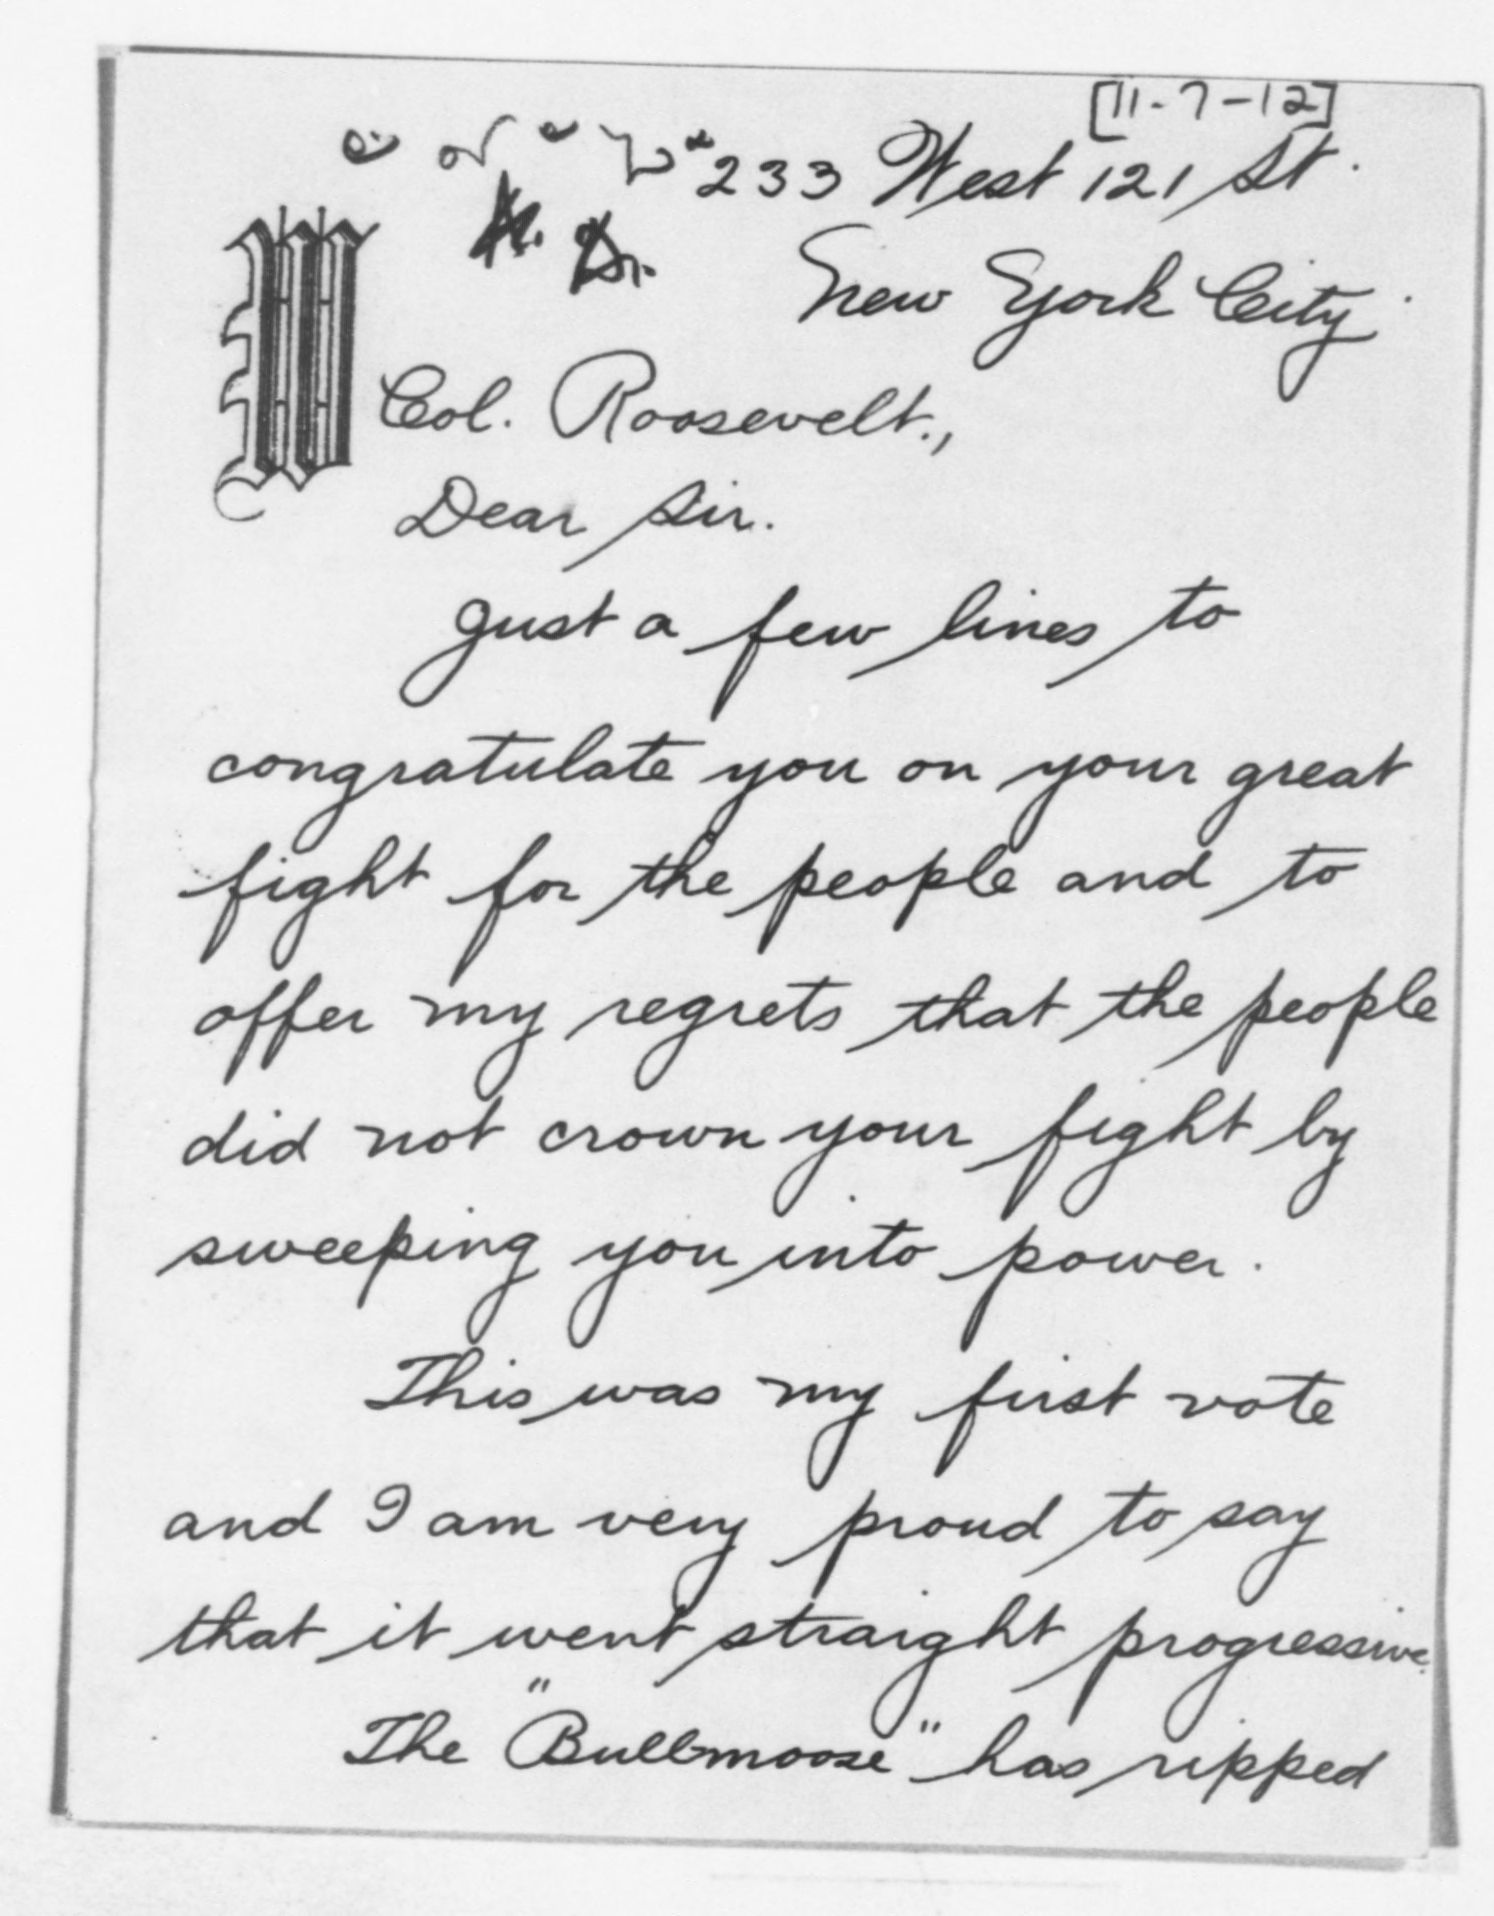 [11-7-12]
#233 West 121 St.
New York City.
Col. Roosevelt.,
Dear Sir.
Just a few lines to
congratulate you on your great
fight for the people and to
offer my regrets that the people
did not crown your fight by
sweeping you into power.
This was my first vote
and I am very proud to say
that it went straight progressive.
The "Bullmoose" has ripped